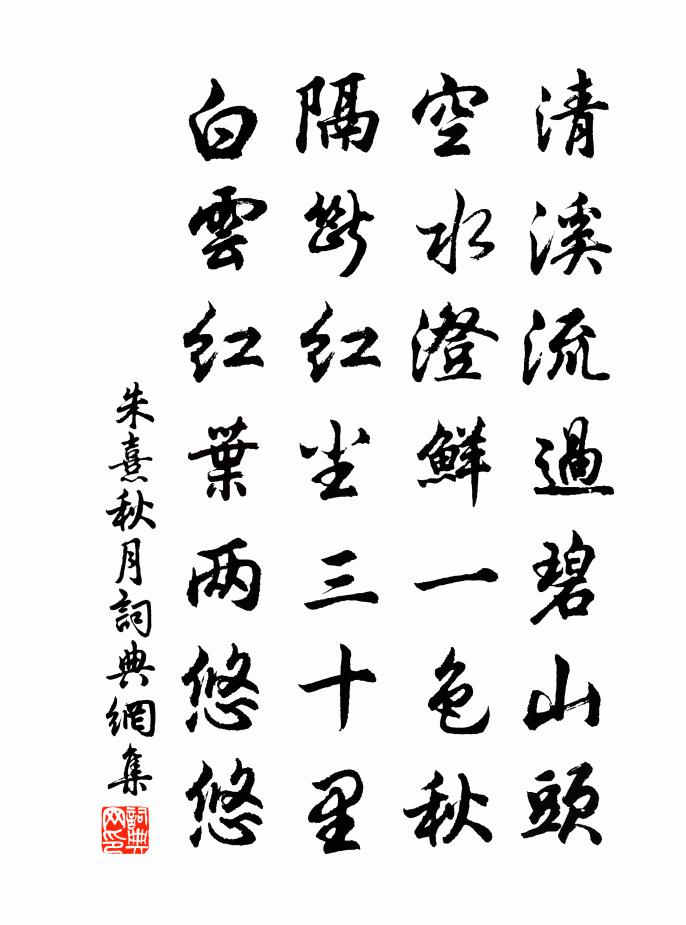 清溪流過碧山頭
空水澄鮮一色秋
隔斷紅尘三十里
白雲紅葉两悠悠
朱熹秋月詞典網集
詞典网印